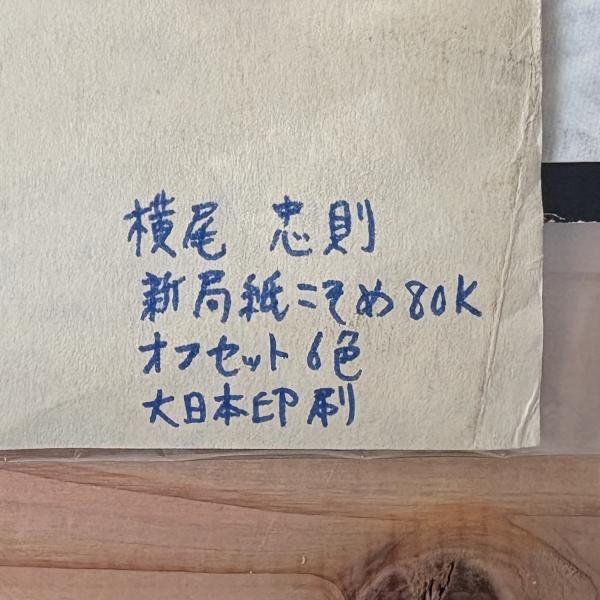 横尾 忠則
新局紙こそめ80K
オフセット6色
大日本印刷